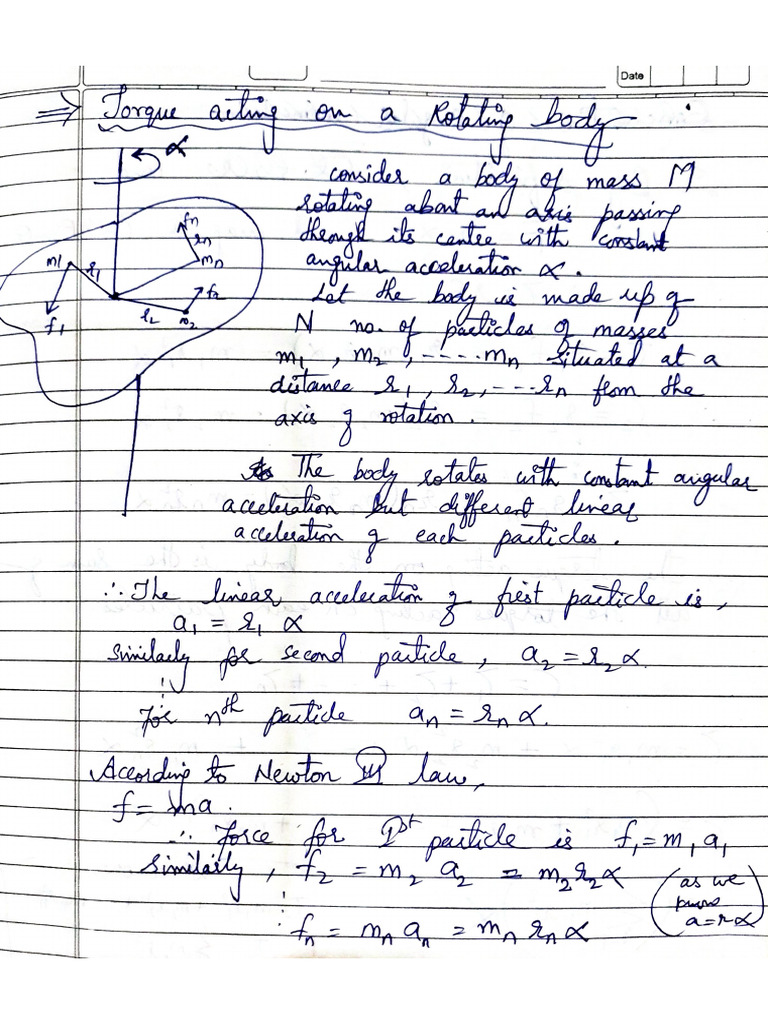 Date
⇒ Torque acting on a Rotating body
α
consider a body of mass M
rotating about an axis passing
through its centre with constant
angular acceleration α.
Let the body is made up of
N no. of particles of masses
m1, m2, ----- mn situated at a
distance r1, r2, --- rn from the
axis of rotation.
fn
rn
mn
m1
r1
f1
f2
r2
m2
The body rotates with constant angular
acceleration but different linear
acceleration of each particles.
∴ The linear acceleration of first particle is,
a1 = r1 α
Similarly for second particle, a2 = r2 α.
for nth particle an = rn α.
According to Newton III law,
f = ma.
∴ force for Ist particle is f1 = m1 a1
Similarly, f2 = m2 a2 = m2 r2 α
(as we
a = r α)
fn = mn an = mn rn α